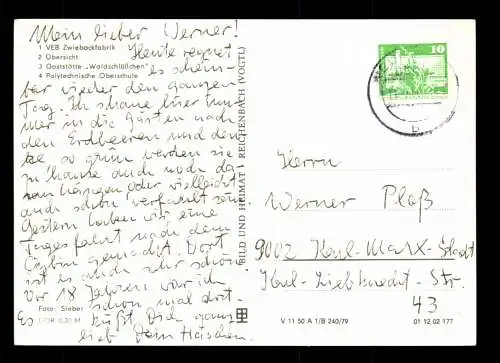 Mein lieber Werner!
1 VEB Zwiebackfabrik
Heute regnet
2 Übersicht
3 Gaststätte „Waldschlößchen"
es schein-
4 Polytechnische Oberschule
bar wieder den ganzen
Tag. Ich schaue hier
mer in die Gärten nach
den Erdbeeren und den
ke so grün werden sie
zu Hause auch noch da-
ran hängen oder vielleicht
auch schon verfault sein.
Gestern haben wir eine
Tagesfahrt nach dem
gemacht. Dort
ist es auch sehr schön
Vor 18 Jahren war ich
schon mal dort.
Foto: Sieber
Es küßt Dich ganz
DDR 0,20 M
lieb Dein Häschen
BILD UND HEIMAT REICHENBACH (VOGTL)
10
Herrn
Werner Ploß
9002 Karl-Marx-Stadt
Karl-Liebknecht-Str.
43
V 11 50 A 1/B 240/79
01 12 02 177